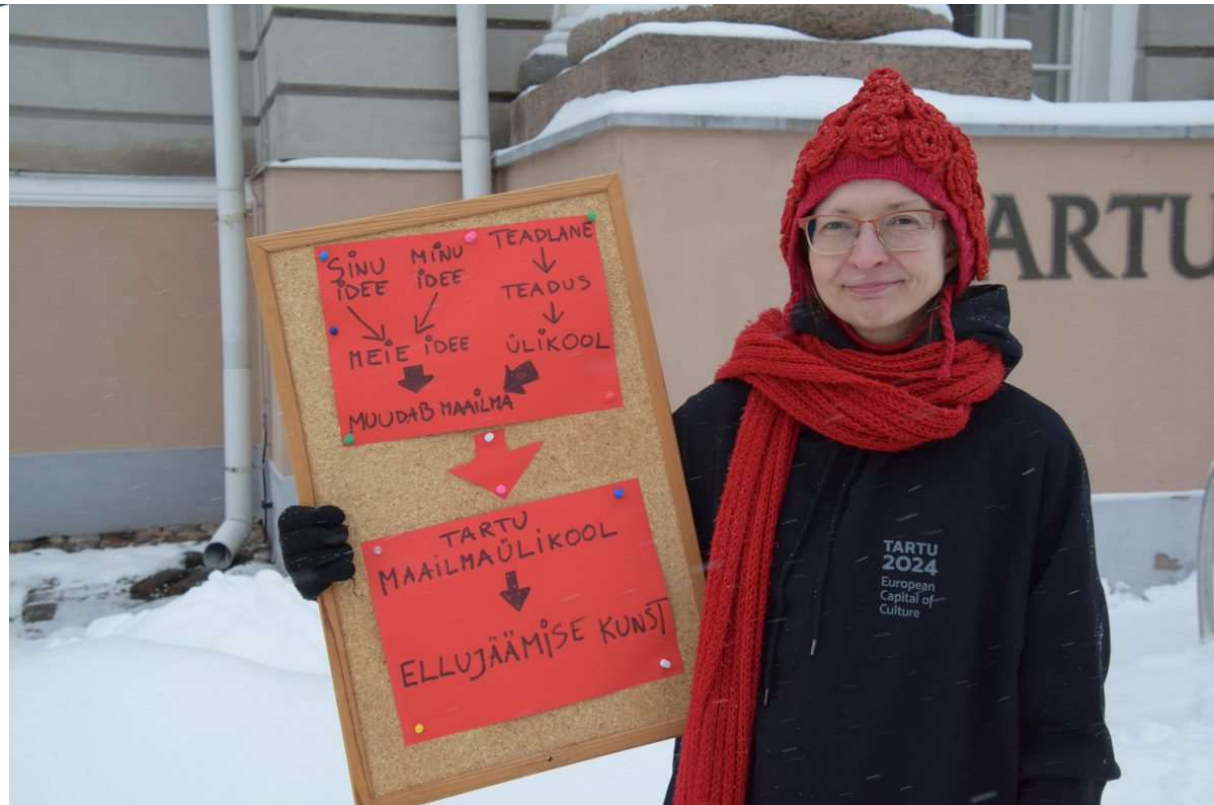 SINU MINU TEADLANE
IDEE IDEE
TEADUS
MEIE IDEE ÜLIKOOL
MUUDAB MAAILMA
TARTU
MAAILMAÜLIKOOL
ELLUJÄÄMISE KUNST
ARTU
TARTU
2024
European
Capital of
Culture